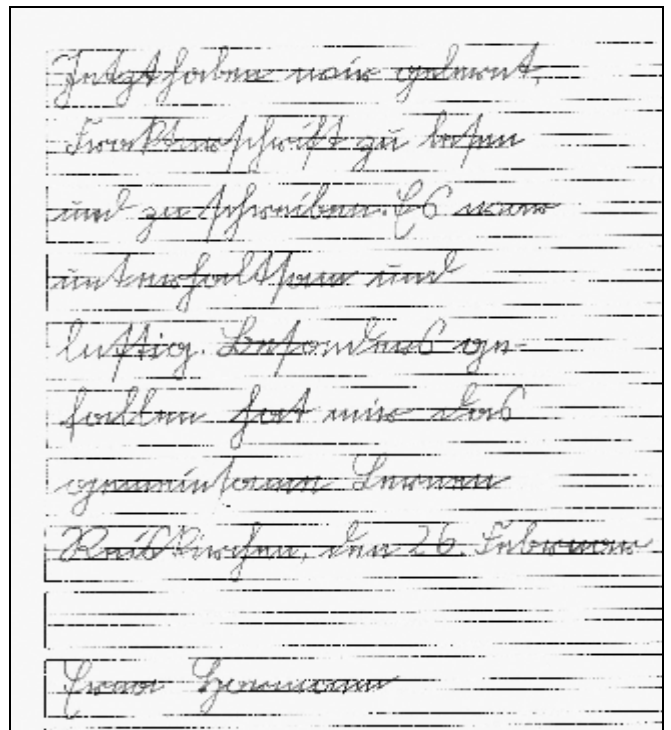 Jetzt haben wir gelernt,
Frakturschrift zu lesen
und zu schreiben. Es war
unterhaltsam und
lustig. Besonders ge-
fallen hat mir das
gemeinsame Lernen
Reiskirchen, den 26. Februar
Erna Hormann